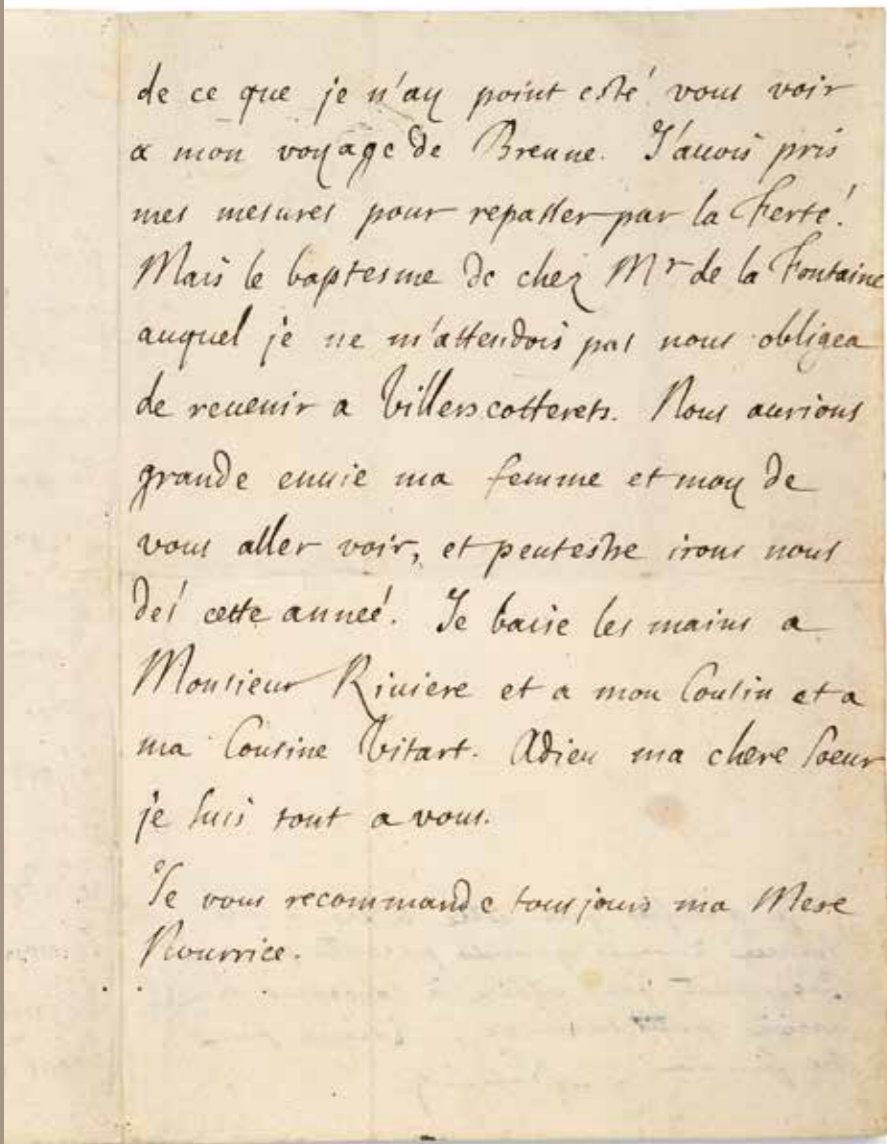 de ce que je n'ay point esté vous voir
a mon voyage de Breune. J'auois pris
mes mesures pour repasser par la Ferté.
Mais le baptesme de chez Mr de la Fontaine
auquel je ne m'attendois pas nous obligea
de reuenir a Villerscotterets. Nous aurions
grande enuie ma femme et moy de
vous aller voir, et peutestre irons nous
des cette anneé. Je baise les mains a
Monsieur Riuiere et a mon Cousin et a
ma Cousine Vitart. Adieu ma chere Soeur
je suis tout a vous.
Je vous recommande tousjours ma Mere
Nourrice.